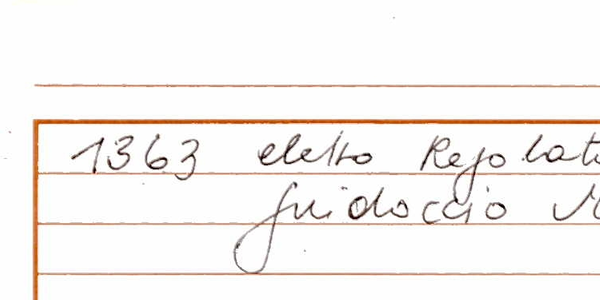 1363 eletto Regolato
Guidoccio M